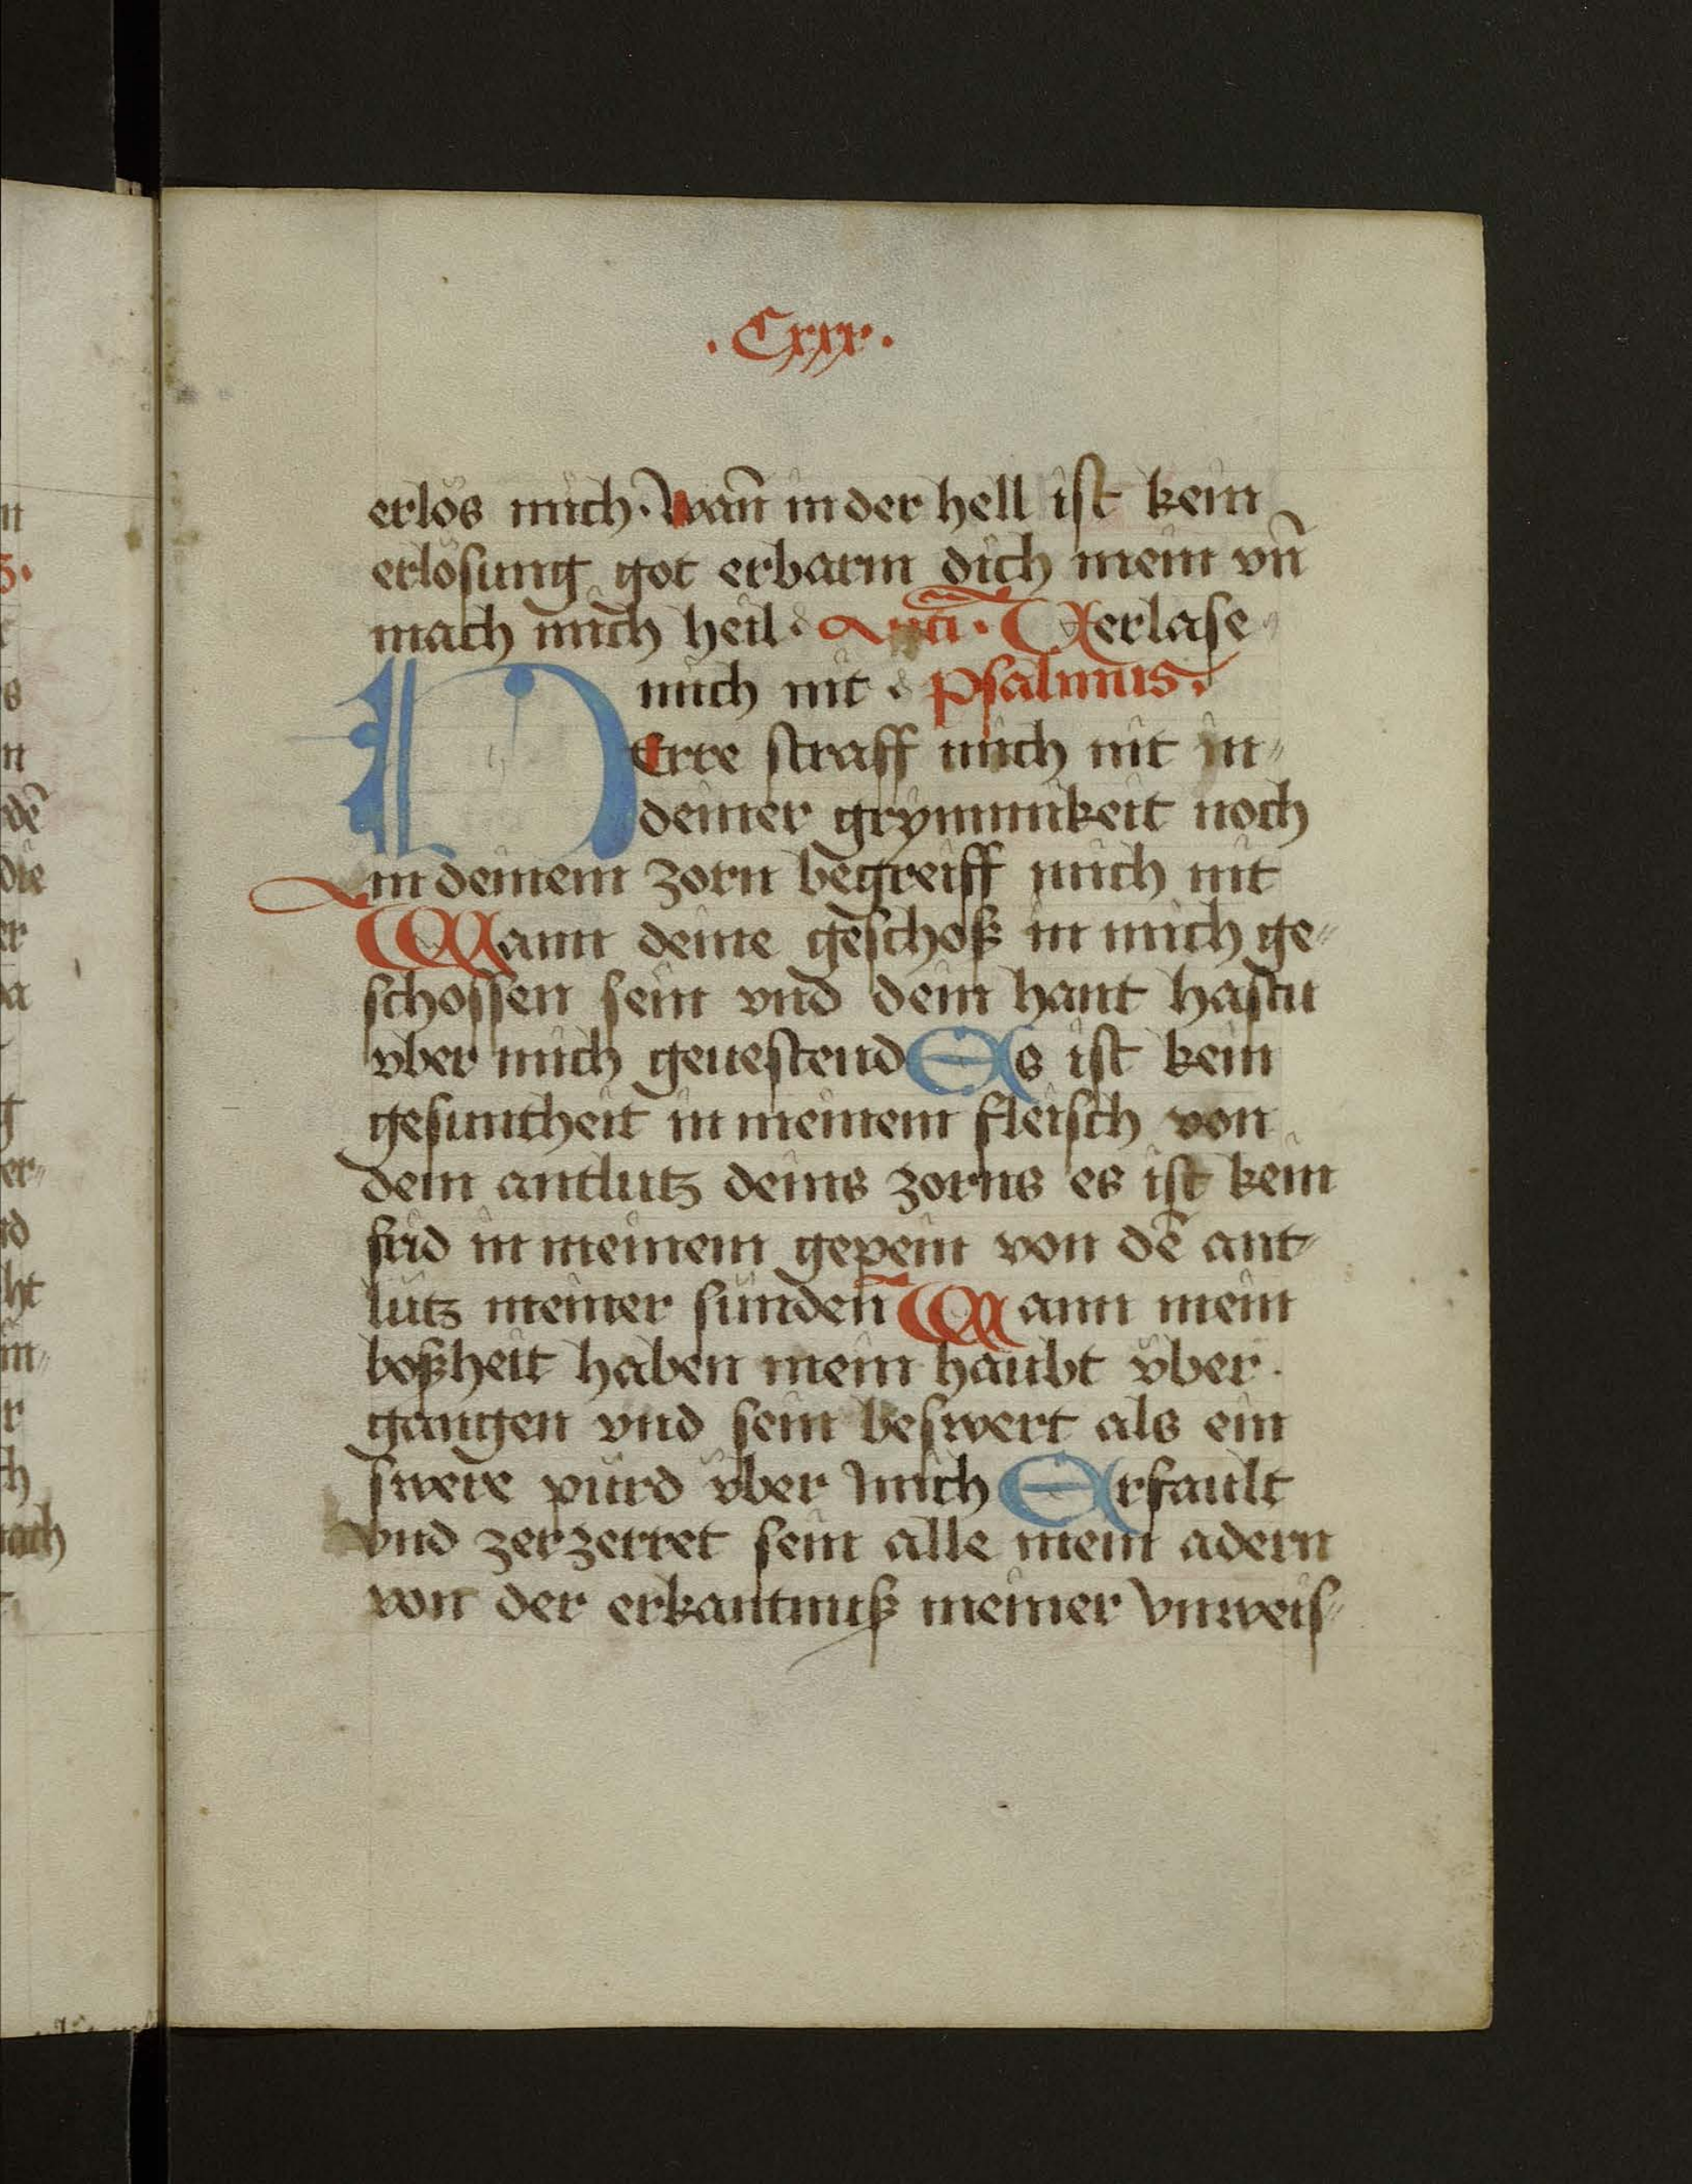 .Cxxx.
erlös mich. Wan̄ in der hell ist kein
erlösung got erbarm dich mein vn̄
mach mich heil. Anti. Verlase
mich nit. Psalmus.
HErre straff mich nit in⸗
deiner grymmikeit noch
in deinem zorn begreiff mich nit
Wann deine geschoß in mich ge⸗
schossen sein vnd dein hant hastu
vber mich geuestend Es ist kein
gesuntheit in meinem fleisch von
dem antlutz deins zorns es ist kein
frid in meinem gepein von dē ant⸗
lutz meiner sünden̄ Wann mein
boßheit haben mein haubt v̈ber.
gangen vnd sein beswert als ein
swere pürd v̈ber mich Erfault
vnd zerzerret sein alle mein adern
von der erkantnuß meiner vnweis⸗